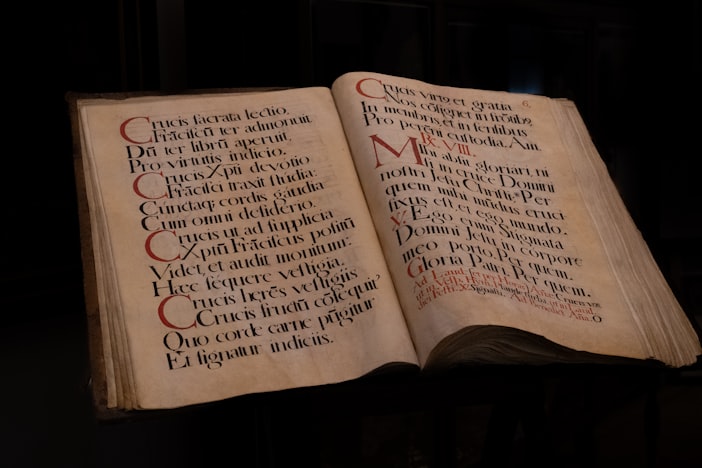 Crucis sacrata lectio,
Frãcilcũ ter admonuit
Dũ ter librũ aperuit,
Pro virtutis indicio.
Crucis Xpti devotio
Frãcisci traxit studia:
Cunctaq; cordis gaudia
Cum omni desiderio.
Crucis ut ad supplicia
Xptũ Frãciscus positũ
Videt, et audit monitum:
Hæc sequere vestigia.
Crucis herẽs vestigiis
Crucis fructũ cõsequit'
Quo corde carne pũgitur
Et signatur indiciis.
6.
Crucis virtq et gratia
Nos cõsignet in frõtibq
In membris, et in sensibus
Pro perẽni custodia. Am.
R. VIII.
Mihi absit gloriari, ni
si in cruce Domini
nostri Jesu Christi, * Per
quem mihi mũdus cruci
fixus est, et ego mundo.
℣. Ego enim Stigmata
Domini Jesu in corpore
meo porto. Per quem.
Gloria Patri. Per quem.
Ad Laud.